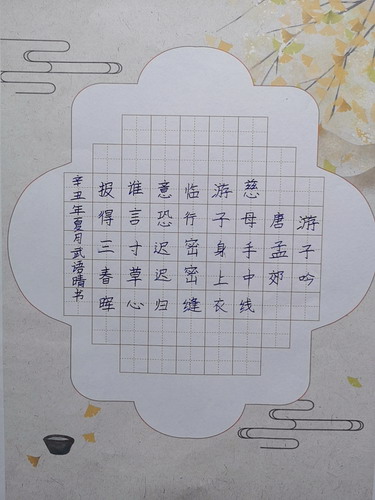 游子吟
唐孟郊
慈母手中线
游子身上衣
临行密密缝
意恐迟迟归
谁言寸草心
报得三春晖
辛丑年夏月武语晴书